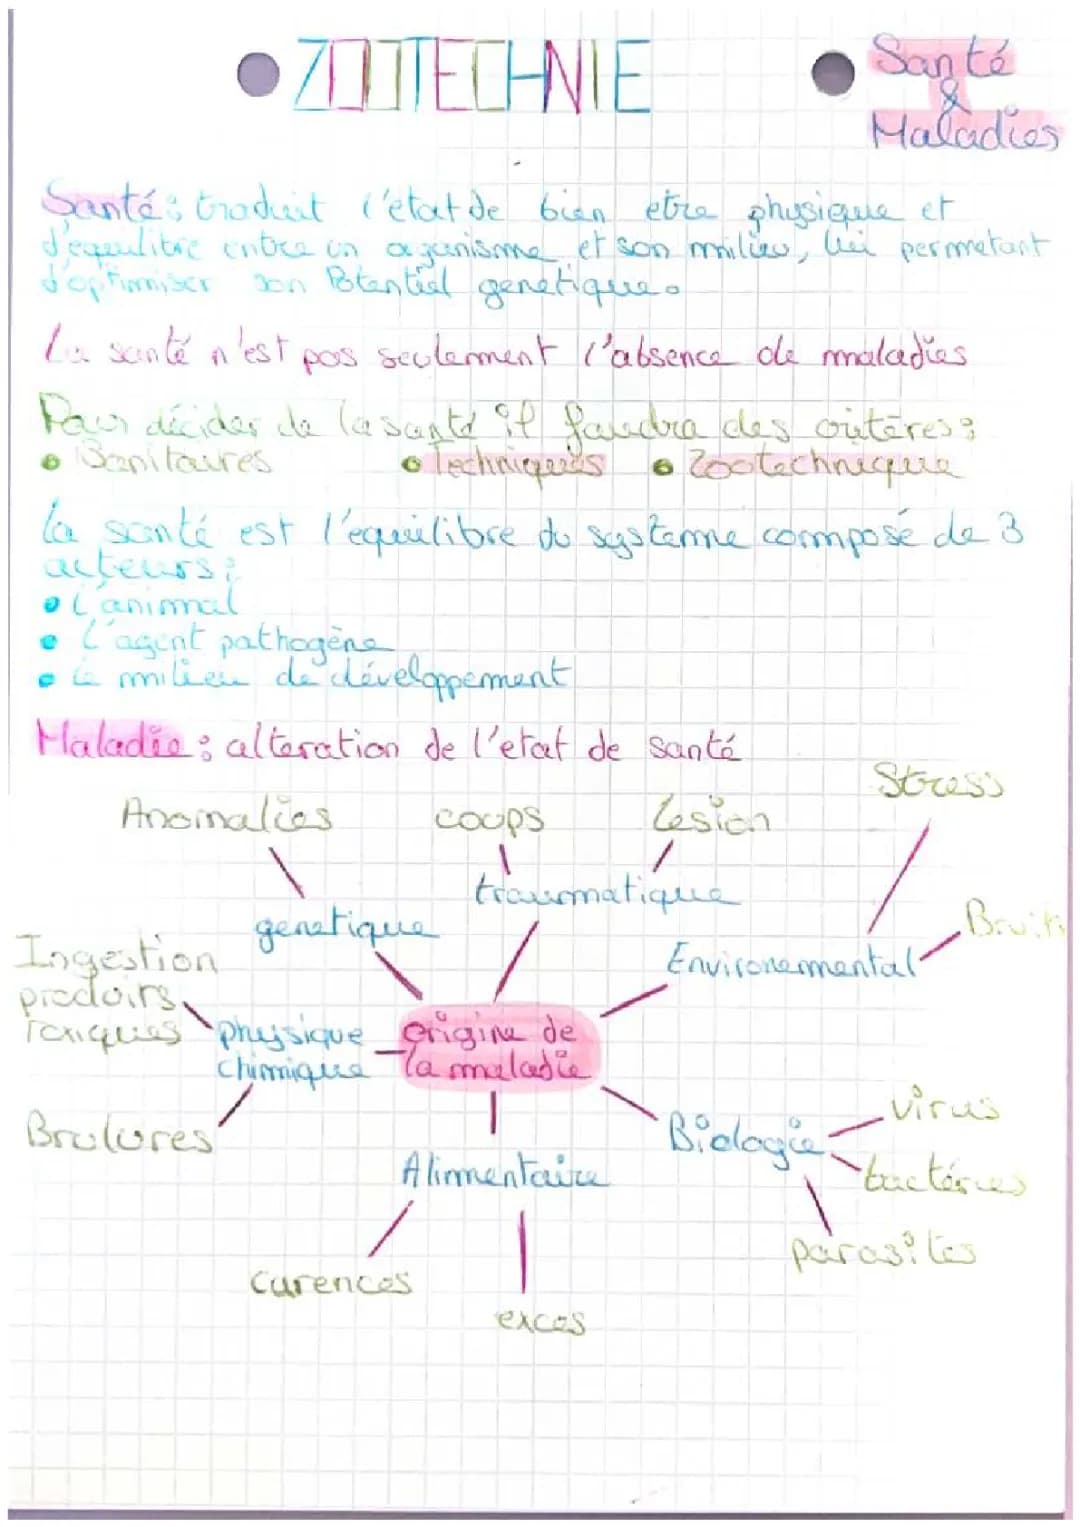 ZOOTECHNIE
Santé
&
Maladies
Santé : traduit l'état de bien etre physique et
d'equilibre entre un organisme et son milieu, lui permetant
d'optimiser son Potentiel genetique.
La santé n'est pas seulement l'absence de maladies
Pour décider de la santé il faudra des critères :
• Sanitaires • Techniques • Zootechnique
La santé est l'equilibre du systeme composé de 3
acteurs :
• L'animal
• L'agent pathogène
• Le milieu de développement
Maladie : alteration de l'etat de santé
Stress
Anomalies coups Lesion
traumatique
genetique
Bruits
Environemmental
Ingestion
produits
Toxiques
physique
chimique
origine de
la maladie
Brulures
Biologie
virus
bactéries
parasites
Alimentaire
Carences
exces